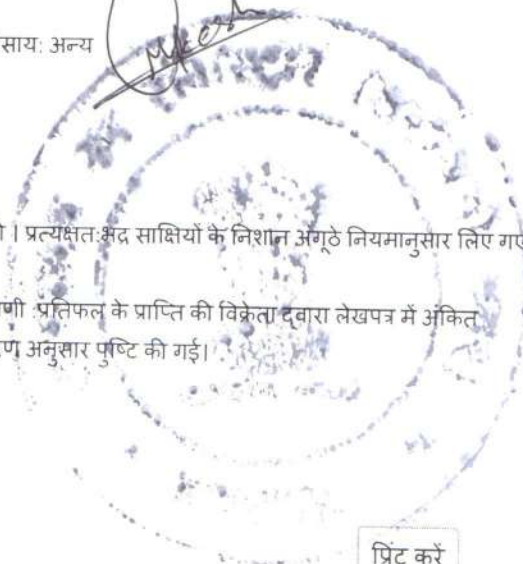 साय: अन्य
ी । प्रत्यक्षत:भद्र साक्षियों के निशान अंगूठे नियमानुसार लिए गए
णी :प्रतिफल के प्राप्ति की विक्रेता द्वारा लेखपत्र में अंकित
ण अनुसार पुष्टि की गई।
प्रिंट करें